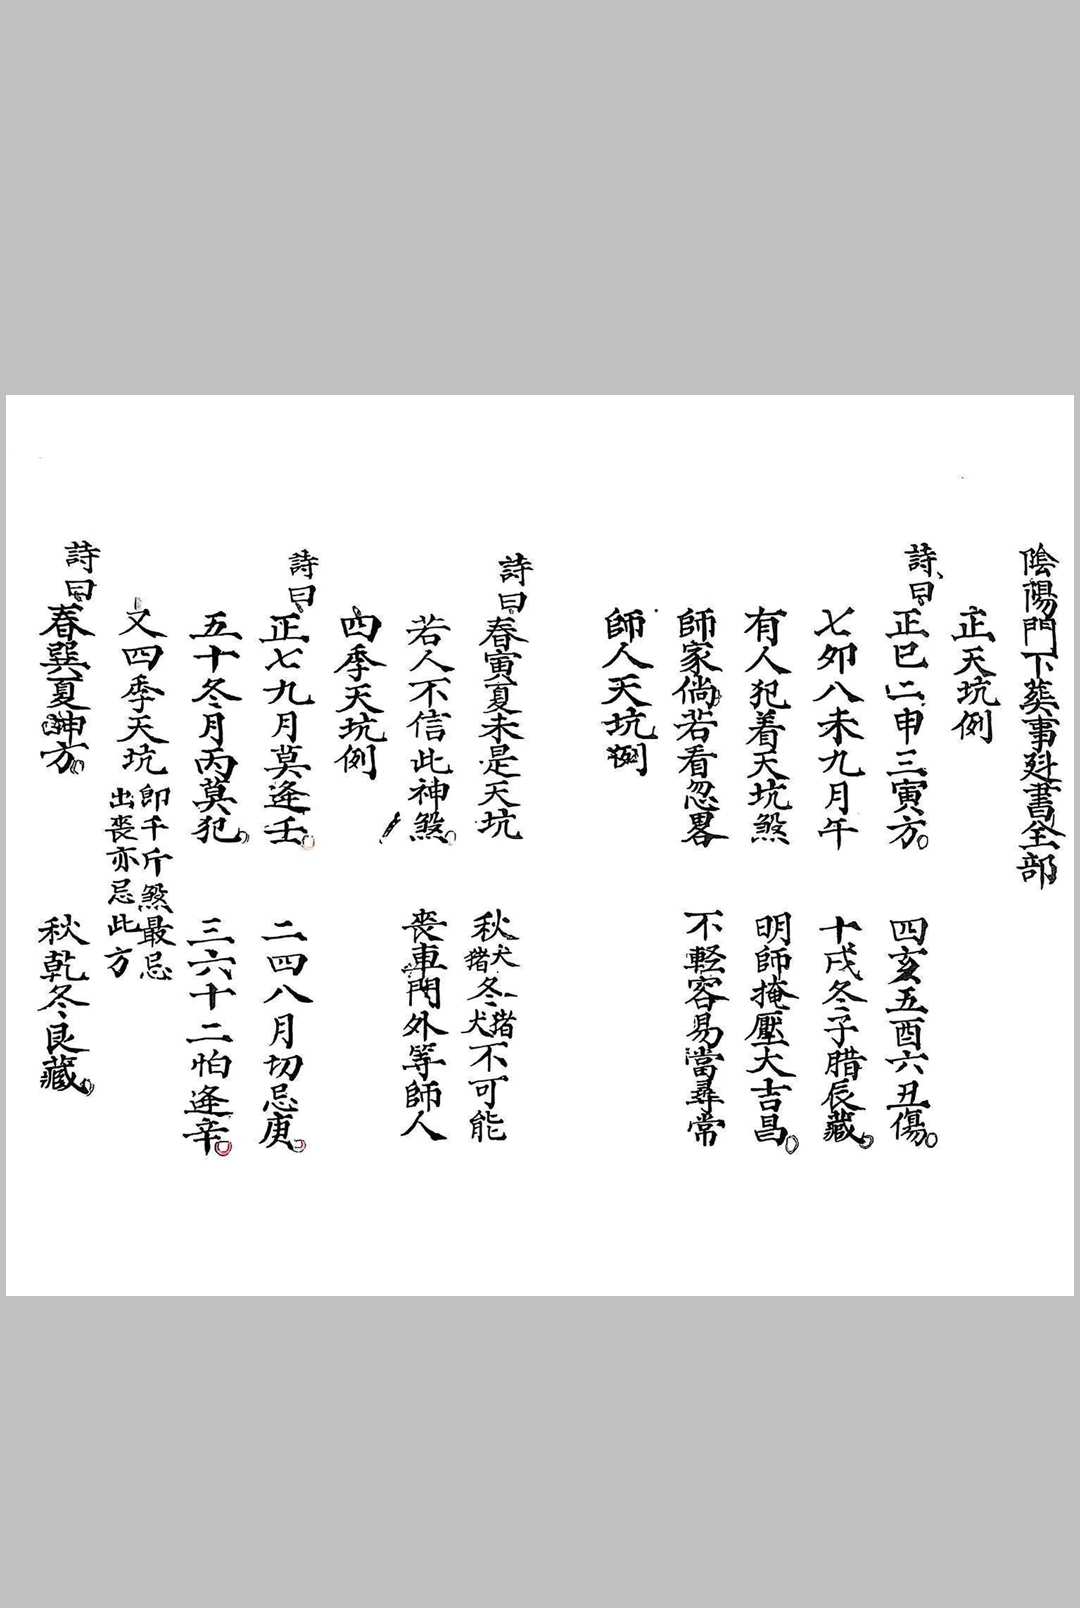 陰陽門下葬事書全部
正天坑例
詩曰正巳二申三寅方。 四亥五酉六丑傷。
七卯八未九月午 十戌冬子腊辰藏。
有人犯着天坑煞 明師掩壓大吉昌。
師家倘若看忽畧 不軽容易當尋常
師人天坑例
詩曰春寅夏未是天坑 秋犬猪冬猪犬不可能
若人不信此神煞。 丧車門外等師人
四季天坑例
詩曰正七九月莫逢壬。 二四八月切忌庚。
五十冬月丙莫犯。 三六十二怕逢辛。
又四季天坑 即千斤煞最忌
出丧亦忌此方
詩曰春巽夏坤方。 秋乾冬艮藏。